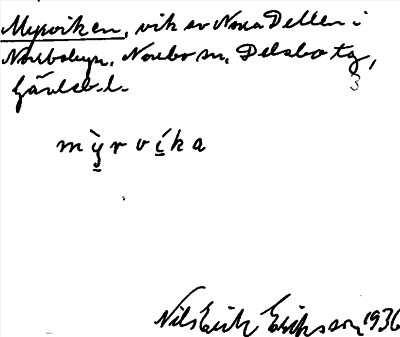 Myrviken, vik av Norra Dellen i
Norrbobyn, Norrbo sn, Delsbo tg,
Gävleb. l. 3
mỳrvíka
Nils Erik Eriksson 1936